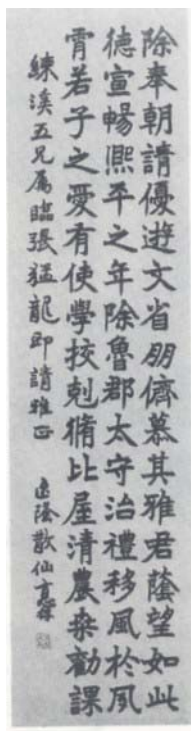 除奉朝請優遊文省朋儕慕其雅君蔭望如此
德宣暢熈平之年除魯郡太守治禮移風於夙
霄若子之愛有使學挍剋脩比屋清農桒勸課
練溪五兄属臨張猛龍即請雅正 陰散仙